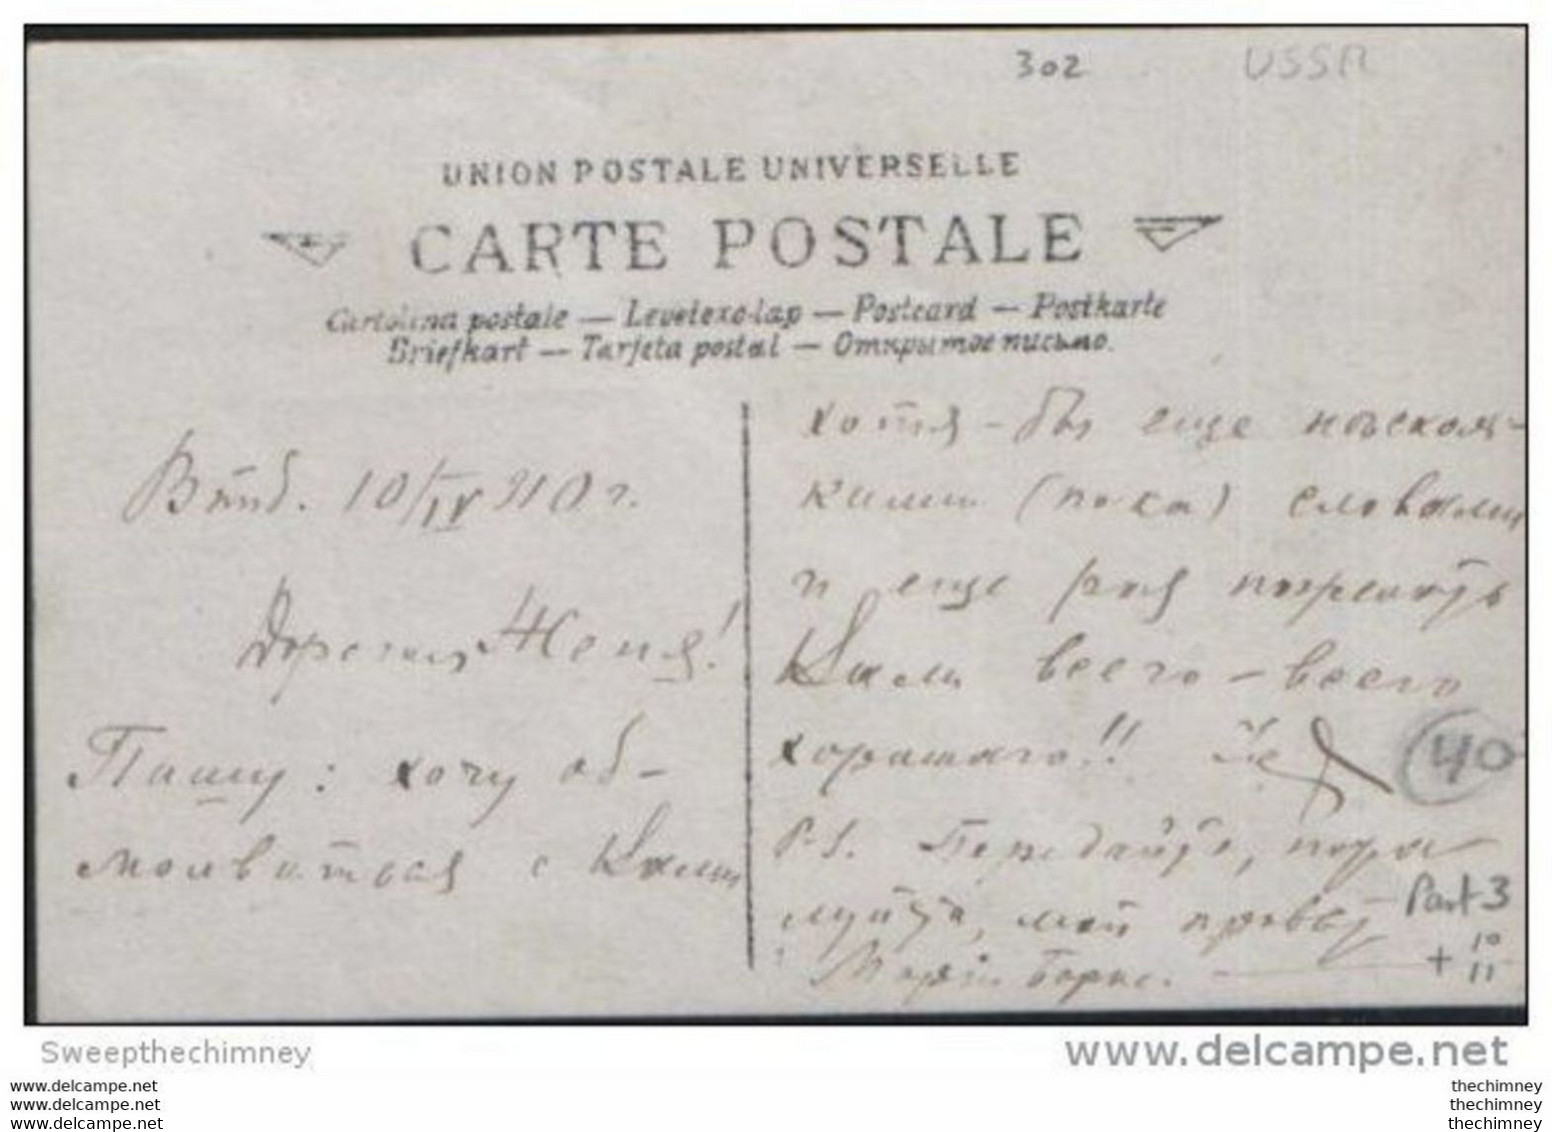 302
USSR
UNION POSTALE UNIVERSELLE
CARTE POSTALE
Cartolina postale — Levelezo-lap — Postcard — Postkarte
Briefkart — Tarjeta postal — Открытое письмо.
10/IV 910 г.
Дорогая Женя!
Пишу: хочу об-
молвиться с Вами
хотя-бы еще нѣсколь-
кими (пока) словами
и еще раз пожелать
Вам всего-всего
хорошаго!!
P.S. Передайте, пожа-
луйста, мой привѣт
Марiи Борис.
40
Part 3
+ 10
11
Sweepthechimney
www.delcampe.net
www.delcampe.net
www.delcampe.net
www.delcampe.net
thechimney
thechimney
thechimney